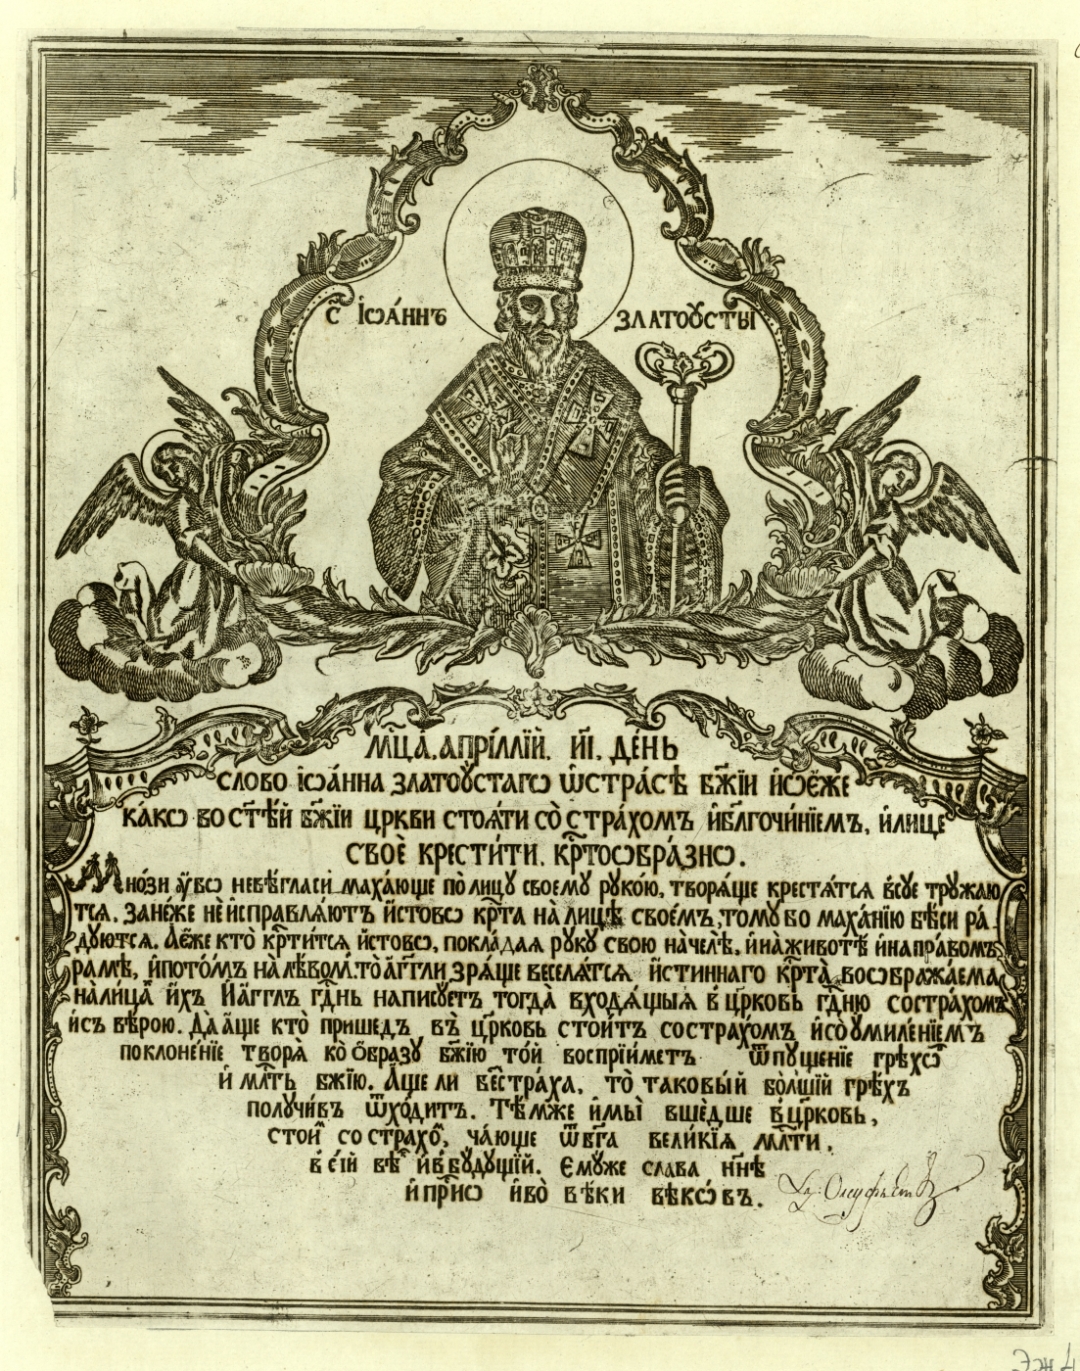 С҃ Іѡа́ннъ Златоꙋсты
Мц҃а. апрі́ллїй. иі҃. де́нь
слово іѡа́нна златоꙋстагѡ ѡ҆стра́сѣ бж҃їи и҆ѡе҆́же
ка́кѡ во ст҃ѣ́й бж҃їи цр҃кви стоѧ́ти со̀ стра́хомъ и҆бл҃гочи́нїемъ, и҆лице
своѐ крести́ти. кр҃тоѡбразнѡ.
Мно́зи ᲂу҆́бѡ невѣ́гласи маха́юще полицꙋ̀ своемꙋ рꙋко́ю, творѧ́ще крестѧ́тсѧ всꙋе трꙋжаю
тсѧ. зане́же не и҆справлѧ́ютъ и҆́стовѡ кр҃та на лицѣ̀ своє́мъ, томꙋ бо маха́нїю бѣ́си ра́
дꙋютсѧ. А е҆́же кто̀ кр҃ти́тсѧ и҆́стовѡ, покла́даѧ рꙋкꙋ свою на челѣ̀, и҆ на животѣ̀ и҆ на правомъ
рамѣ, и҆ пото́мъ на лѣ́вом. то а҆́гг҃ли зрѧ́ще веселѧ́тсѧ и҆́стиннаго кр҃та̀ воѡбража́ема
на лица́ и҆́хъ И҆ а҆́гг҃лъ гд҃нь написꙋ́етъ тогда̀ входѧ́щыѧ в цр҃ковь гд҃ню со страхомъ
и҆ съ вѣ́рою. Да а҆́ще кто̀ пришедъ въ̀ цр҃ковь стои́тъ со страхо́мъ и҆ со ᲂу҆миле́нїемъ
поклоне́нїе творѧ̀ ко ѻ҆́бразꙋ бж҃їю то́й воспрїи́метъ ѿпꙋще́нїе грѣхѡ́
и҆ мл҃ть бж҃їю. А҆́ще ли бе́стра́ха, то̀ таковы́й бо́лшїй грѣ́хъ
полꙋчи́въ ѿхо́дитъ. Тѣ́мже и҆мы̀ вше́дше в цр҃ковь,
стои́м со страхо́м, ча́юще ѿ бг҃а вели́кїѧ мл҃ти.
в се́й вѣ́к и҆ в бꙋдꙋщїй. Е҆мꙋже слава нн҃ѣ
и҆ пр҃нѡ и҆ во̀ вѣ́ки вѣкѡ́въ.